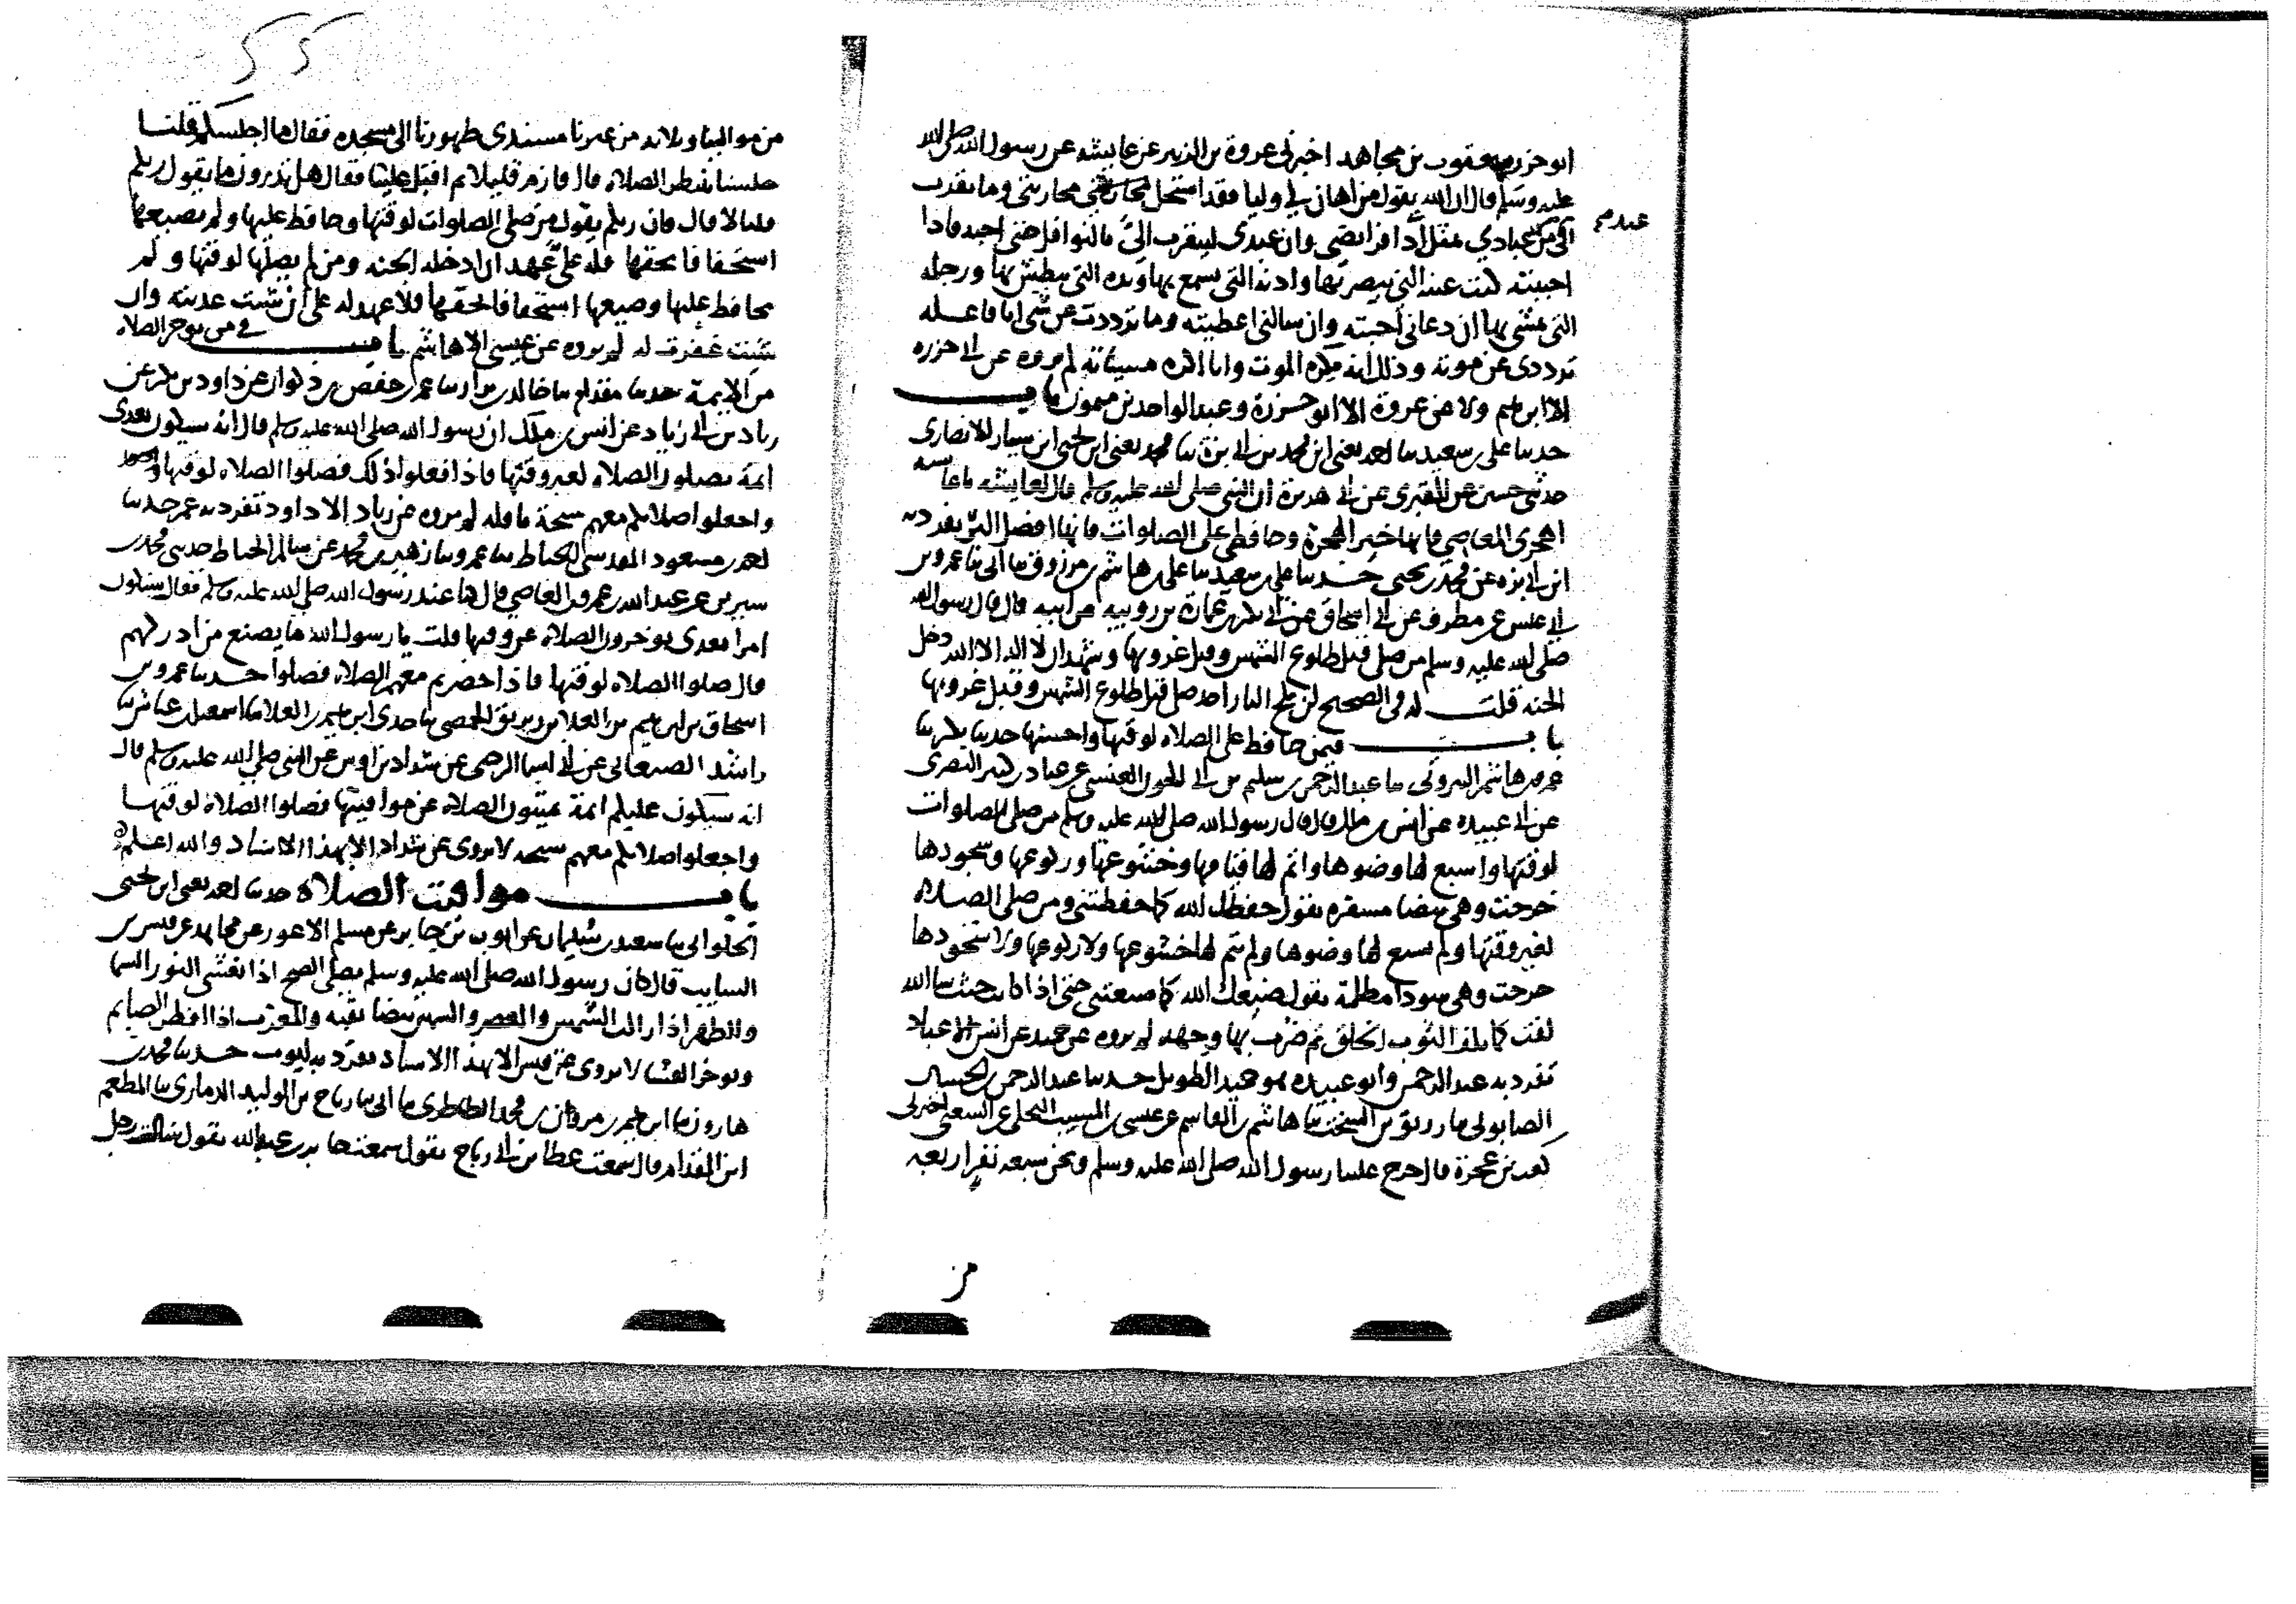 ابو حزره يعقوب بن مجاهد اخبرني عروة بن الزبير عن عايشه عن رسول الله صلى الله
عليه وسلم قال ان الله يقول من اهان لي وليا فقد استحل محاربتي وما تقرب
الي من عبادي بمثل ادا فرايضي وان عبدي ليتقرب الي بالنوافل حتى احبه فاذا
عبد م
احببته كنت عينه التي يبصر بها واذنه التي يسمع بها ويده التي يبطش بها ورجله
التي يمشي بها ان دعاني اجبته وان سالني اعطيته وما ترددت عن شي انا فاعله
ترددي عن موته وذلك انه يكره الموت وانا اكره مساته لم يروه عن ابي حزره
الا ابراهيم ولا عن عروة الا ابو حزرة وعبد الواحد بن ميمون باب
حدثنا علي بن سعيد ثنا احمد يعني ابن محمد بن ابي بزة ثنا محمد يعني ابن يحيى ابن يسار الانصاري
حدثني حسين عن المقبري عن ابي هريرة ان النبي صلى الله عليه وسلم قال لعايشه يا عايشه
اهجري المعاصي فانها خير الهجرة وحافظي على الصلوات فانها افضل البر تفرد به
ابن ابي بزه عن محمد بن يحيى حدثنا علي بن سعيد ثنا علي بن هاشم بن مرزوق ثنا ابي ثنا عمرو بن
ابي قيس عن مطرف عن ابي اسحاق عن ابي بكر بن عمارة بن رويبه عن ابيه قال قال رسول الله
صلى الله عليه وسلم من صلى قبل طلوع الشمس وقبل غروبها وشهد ان لا اله الا الله دخل
الجنه قلت له في الصحيح لن يلج النار احد صلى قبل طلوع الشمس وقبل غروبها
باب فيمن حافظ على الصلاه لوقتها واحسنها حدثنا بكر ثنا
عمرو بن هاشم البيروتي ثنا عبد الرحمن بن سليم بن ابي الجون العنسي عن عباد بن كثير البصري
عن ابي عبيده عن انس بن مالك قال قال رسول الله صلى الله عليه وسلم من صلى الصلوات
لوقتها واسبغ لها وضوها واتم لها قيامها وخشوعها وركوعها وسجودها
خرجت وهي بيضا مسفره تقول حفظك الله كما حفظتني ومن صلى الصلاه
لغير وقتها ولم يسبغ لها وضوها ولم يتم لها خشوعها ولا ركوعها ولا سجودها
خرجت وهي سودا مظلمة تقول ضيعك الله كما ضيعتني حتى اذا كانت حيث شا الله
لفت كما يلف الثوب الخلق ثم ضرب بها وجهه لم يروه عن حميد عن انس الا عباد
تفرد به عبد الرحمن وابو عبيده هو حميد الطويل حدثنا عبد الرحمن بن الحسين
الصابوني ثنا رزيق بن السخت ثنا هاشم بن القاسم عن عيسى بن المسيب البجلي عن الشعبي اخبرني
كعب بن عجرة قال خرج علينا رسول الله صلى الله عليه وسلم ونحن سبعه نفر اربعه
من
55
من موالينا وثلاثه من عربنا مسندي ظهورنا الى مسجده فقال ما اجلسكم قلنا
جلسنا ننتظر الصلاه قال فارم قليلا ثم اقبل علينا فقال هل تدرون ما يقول ربكم
قلنا لا قال فان ربكم يقول من صلى الصلوات لوقتها وحافظ عليها ولم يضيعها
استخفافا بحقها فله علي عهد ان ادخله الجنه ومن لم يصلها لوقتها ولم
يحافظ عليها وضيعها استخفافا بحقها فلا عهد له علي ان شيت عذبته وان
شيت غفرت له لم يروه عن عيسى الا هاشم باب في من يوخر الصلاه
من الايمة حدثنا مقدام ثنا خالد بن نزار ثنا عمر بن حفص بن ذكوان عن داود بن بكر عن
زياد بن ابي زياد عن انس بن مالك ان رسول الله صلى الله عليه وسلم قال انه سيكون بعدي
ايمة يصلون الصلاه لغير وقتها فاذا فعلوا ذلك فصلوا الصلاه لوقتها
واجعلوا صلاتكم معهم سبحة نافله لم يروه عن زياد الا داود تفرد به عمر حدثنا
احمد بن مسعود المقدسي الخياط ثنا عمرو ثنا زهير بن محمد عن سالم الخياط حدثني محمد بن
سيرين عن عبد الله بن عمرو بن العاصي قال كنا عند رسول الله صلى الله عليه وسلم فقال ستكون
امرا بعدي يوخرون الصلاه عن وقتها قلت يا رسول الله ما يصنع من ادركهم
قال صلوا الصلاه لوقتها فاذا حضرتم معهم الصلاه فصلوا حدثنا عمرو بن
اسحاق بن ابراهيم بن العلا بن زبريق الحمصي ثنا جدي ابراهيم بن العلا ثنا اسمعيل بن عياش ثنا
راشد الصنعاني عن ابي اسما الرحبي عن شداد بن اوس عن النبي صلى الله عليه وسلم قال
انه سيكون عليكم ايمة يميتون الصلاه عن مواقيتها فصلوا الصلاة لوقتها
واجعلوا صلاتكم معهم سبحه لا يروى عن شداد الا بهذا الاسناد والله اعلم
باب مواقيت الصلاة حدثنا احمد يعني ابن يحيى
الحلواني ثنا سعيد بن سليمان عن ايوب بن جابر عن مسلم الاعور عن مجاهد عن قيس بن
السايب قال كان رسول الله صلى الله عليه وسلم يصلي الصبح اذا تغشى النور السما
والظهر اذا زالت الشمس والعصر والشمس بيضا نقيه والمغرب اذا افطر الصايم
ويوخر العشا لا يروى عن قيس الا بهذا الاسناد تفرد به ايوب حدثنا محمد بن
هارون ثنا ابراهيم بن مروان بن محمد الطاطري ثنا ابي ثنا رباح بن الوليد الذماري ثنا المطعم
ابن المقدام قال سمعت عطا بن ابي رباح يقول سمعت جابر بن عبد الله يقول سال رجل